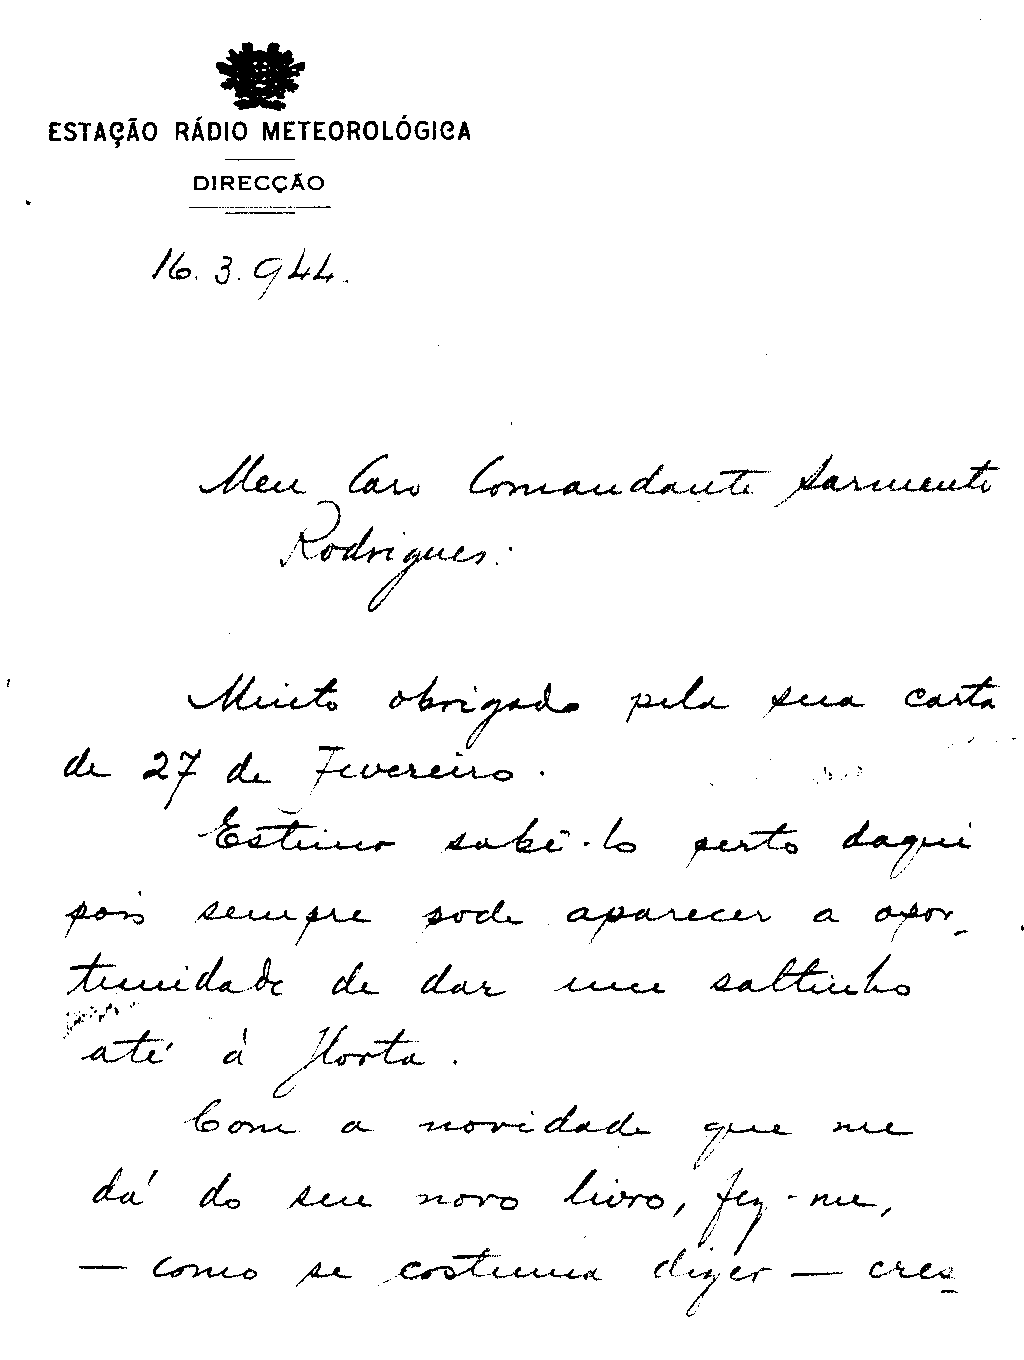 ESTAÇÃO RÁDIO METEOROLÓGICA
DIRECÇÃO
16.3.944.
Meu Caro Comandante Sarmento
Rodrigues:
Muito obrigado pela sua carta
de 27 de Fevereiro.
Estimo sabê-lo perto daqui
pois sempre pode aparecer a opor-
tunidade de dar um saltinho
até à Horta.
Com a novidade que me
dá do seu novo livro, fez-me,
— como se costuma dizer — cres-